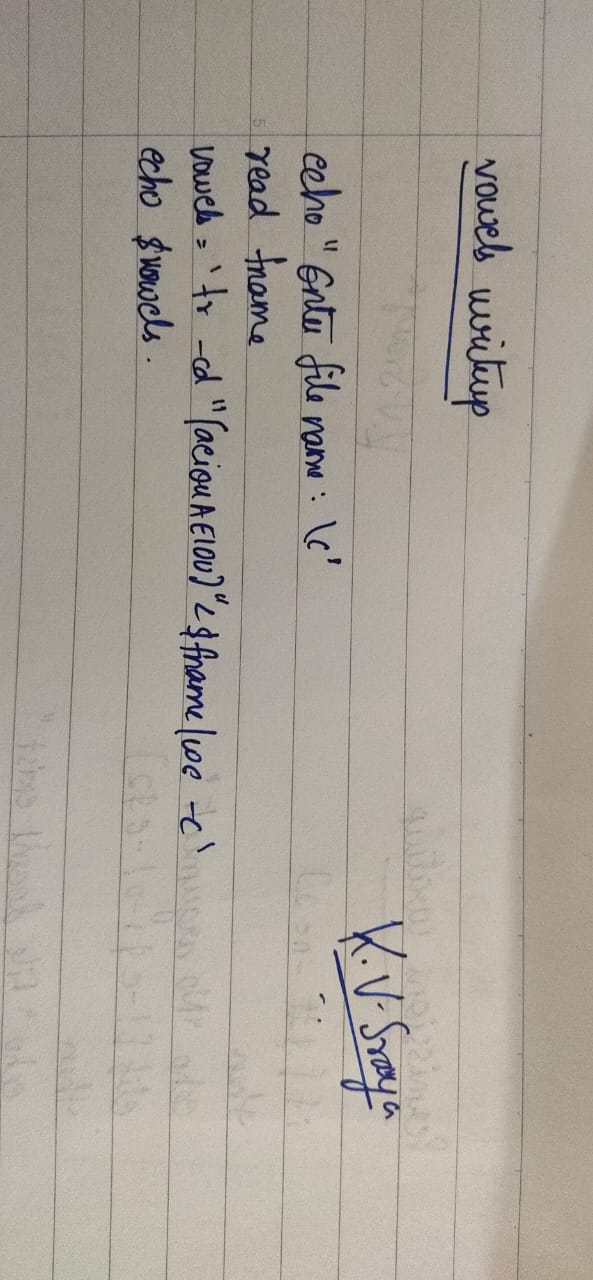 vowels writeup
echo "Enter file name: \c'
read fname
vowels = `tr -cd "[aeiouAEIOU]" <$fname|wc -c`
echo $vowels.
K.V.Sraya
5